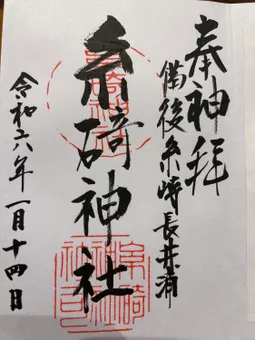 奉神拜
備後糸崎長井浦
糸碕神社
令和六年一月十四日